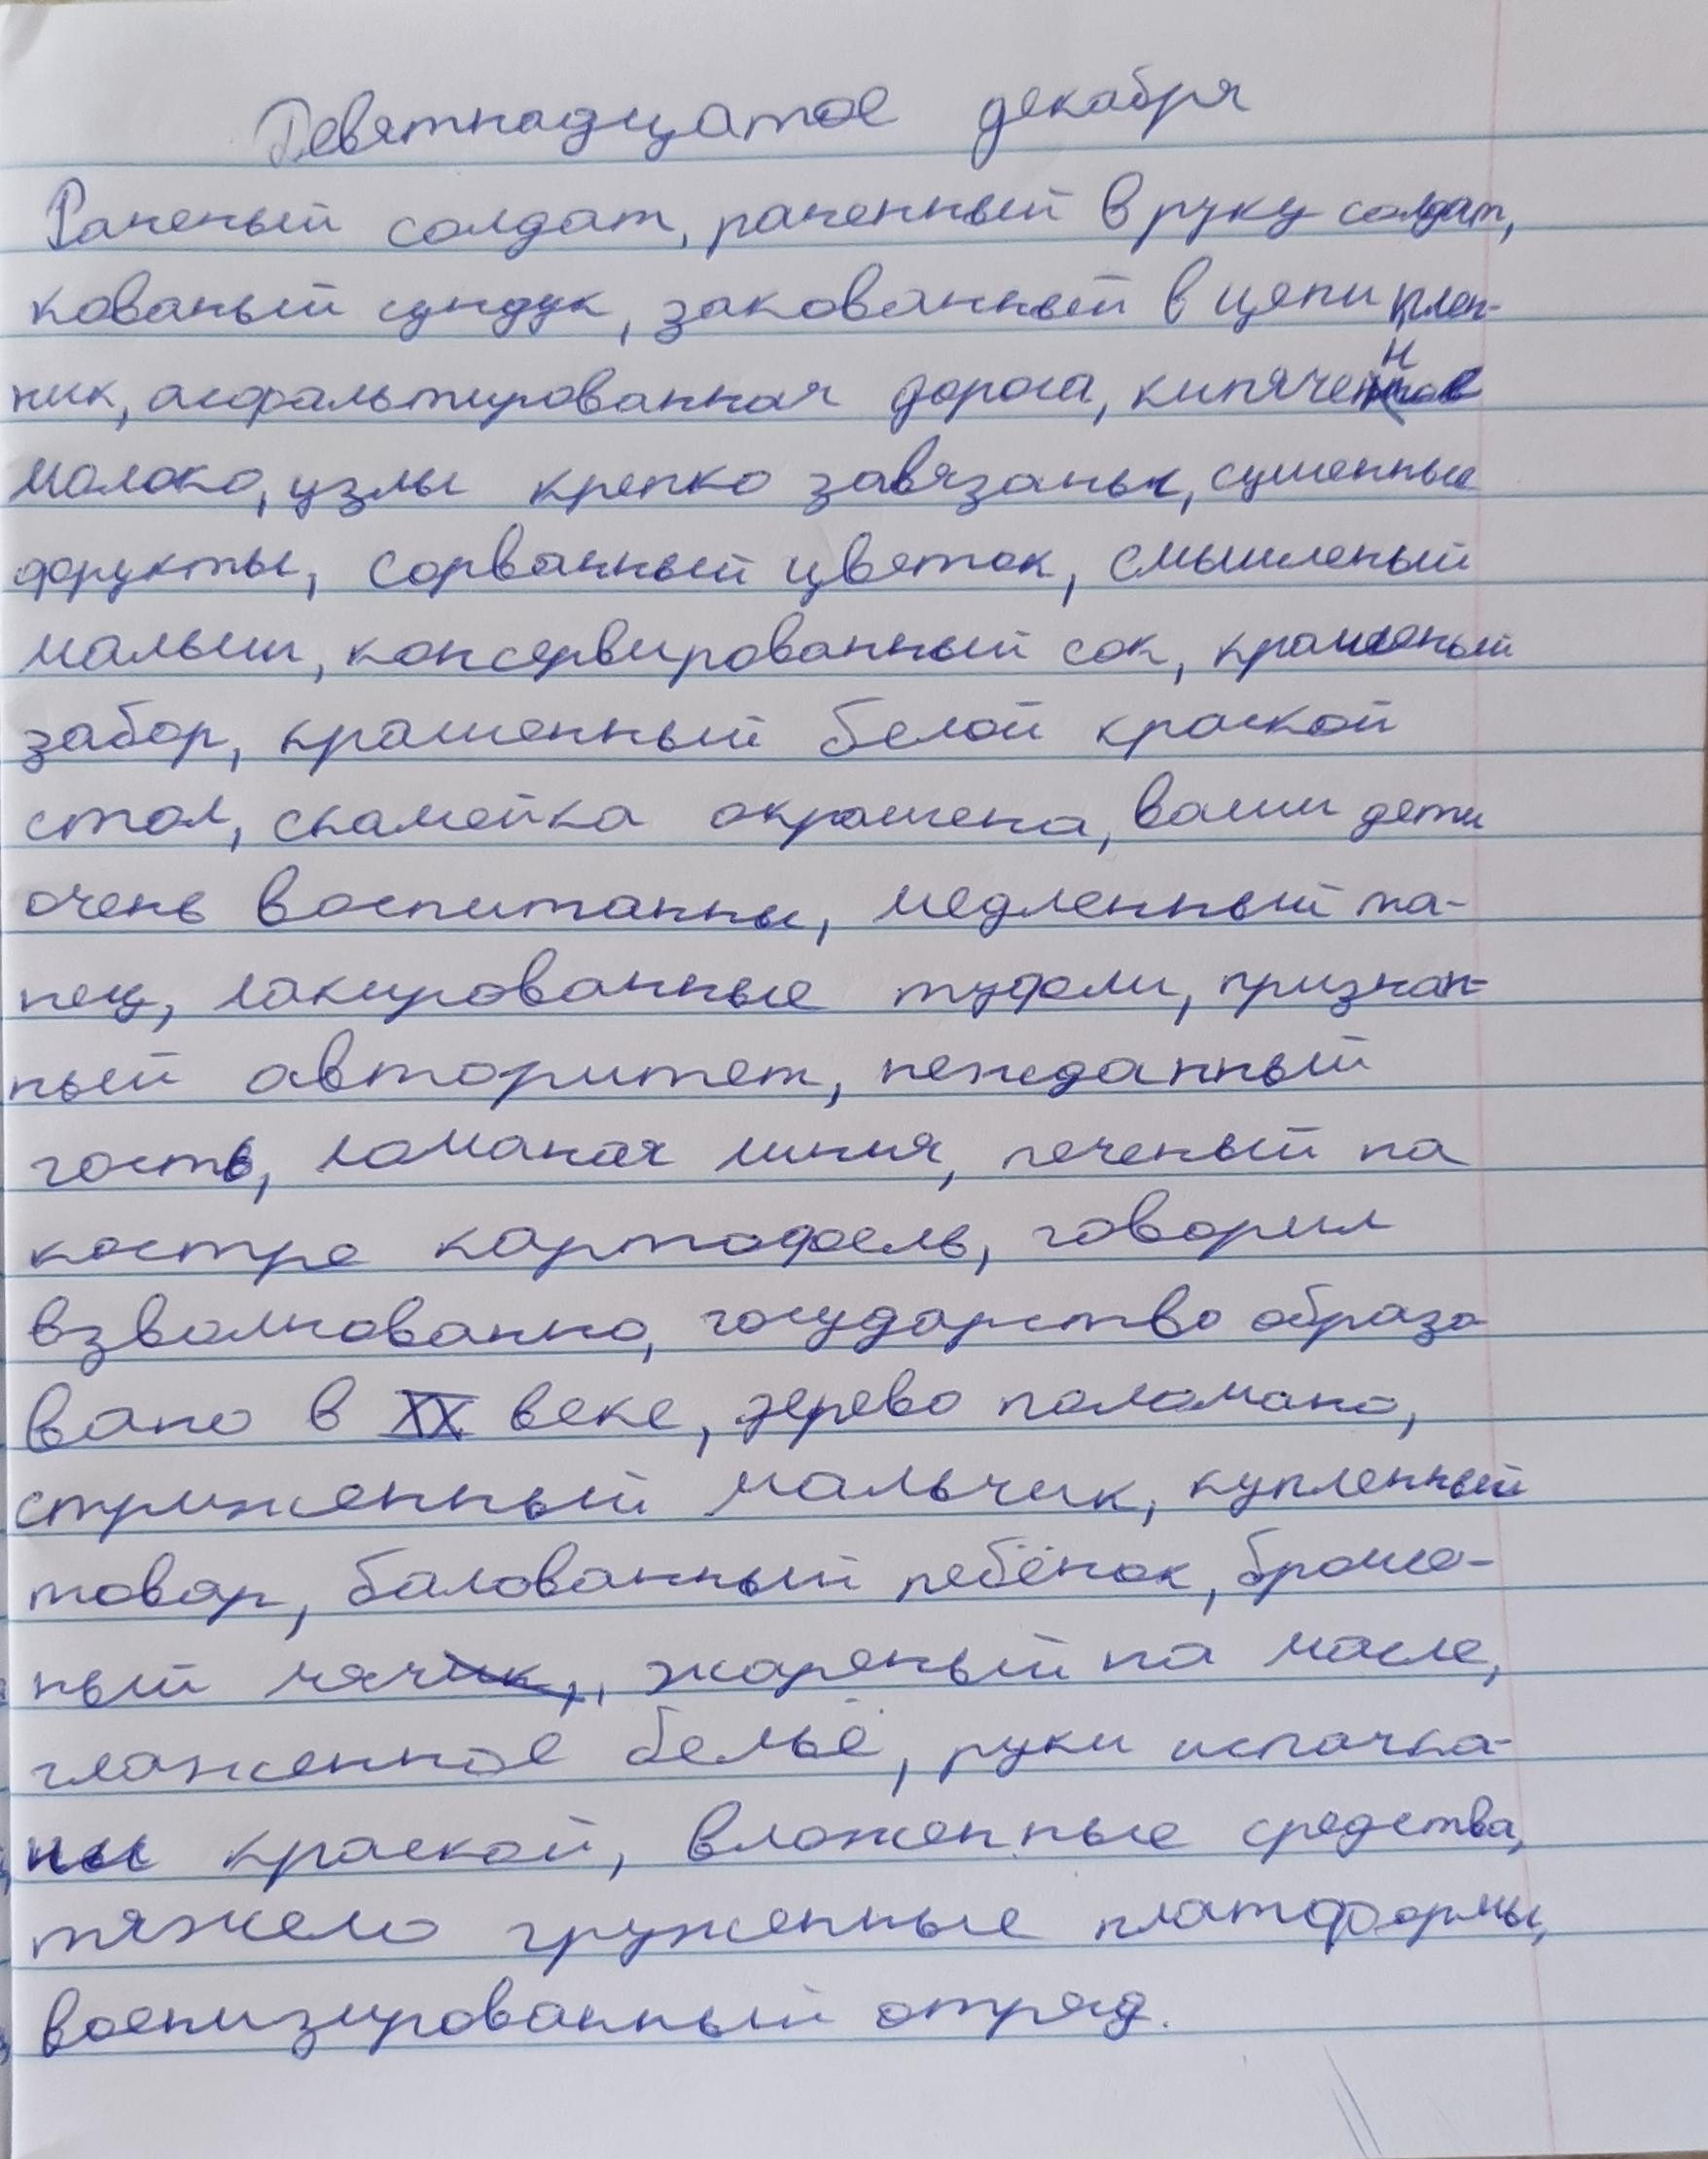 Девятнадцатое декабря
Раненый солдат, раненный в руку солдат,
кованый сундук, закованный в цепи плен-
ник, асфальтированная дорога, кипяченное
молоко, узлы крепко завязаны, сушенные
фрукты, сорванный цветок, смышленый
малыш, консервированный сок, крашеный
забор, крашенный белой краской
стол, скамейка окрашена, ваши дети
очень воспитанны, медленный та-
нец, лакированные туфели, признан-
ный авторитет, нежданный
гость, ломаная линия, печеный на
костре картофель, говорил
взволнованно, государство образо
вано в XX веке, дерево поломано,
стриженный мальчик, купленный
товар, балованный ребёнок, броше-
ный мяч, жареный на масле,
глаженное бельё, руки испачка-
ны краской, вложенные средства,
тяжело груженные платформы,
военизированный отряд.